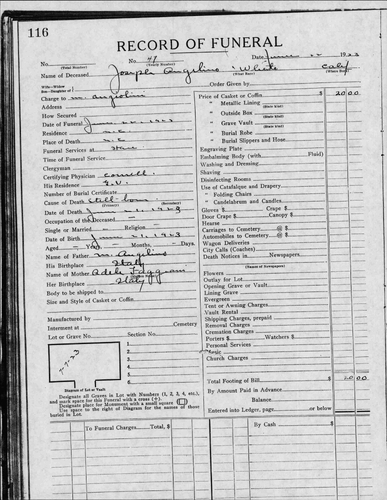 116
RECORD OF FUNERAL
No. 41 Date June 22 1923
(Total Number) (Yearly Number)
Name of Deceased Joseph Angelino White Calif
(What Race) (Where Born)
Wife—Widow
Son—Daughter of
Charge to M. Angelini
Address
How Secured
Date of Funeral June 22 1923
Residence
Place of Death
Funeral Services at
Time of Funeral Service
Clergyman
Certifying Physician
His Residence
Number of Burial Certificate
Cause of Death Still born
(Primary) (Secondary)
Date of Death June 21, 1923
Occupation of the Deceased
Single or Married Religion
Date of Birth June 21, 1923
Aged Years Months, Days.
Name of Father M. Angelino
His Birthplace Italy
Name of Mother Adele
Her Birthplace Italy
Body to be shipped to
Size and Style of Casket or Coffin
Manufactured by
Interment at Cemetery
Lot or Grave No. Section No.
1.
2.
3.
4.
5.
6.
Diagram of Lot or Vault
Designate all Graves in Lot with Numbers (1, 2, 3, 4, etc.),
and mark space for this Funeral with a cross (+).
Designate place for Monument with a small square
Use space to the right of Diagram for the names of those
buried in Lot.
Order Given by
Price of Casket or Coffin $ 20 00
" Metallic Lining
(State Kind)
" Outside Box
(State Kind)
" Grave Vault
(State Kind)
" Burial Robe
" Burial Slippers and Hose
Engraving Plate
Embalming Body (with Fluid)
Washing and Dressing
Shaving
Disinfecting Rooms
Use of Catafalque and Drapery
" Folding Chairs
" Candelabrum and Candles
Gloves $ Crape $
Door Crape $ Canopy $
Hearse
Carriages to Cemetery @ $
Automobiles to Cemetery @ $
Wagon Deliveries
City Calls (Coaches)
Death Notices in Newspapers
(Names of Newspapers)
Flowers
Outlay for Lot
Opening Grave or Vault
Lining Grave
Evergreen
Tent or Awning Charges
Vault Rental
Shipping Charges, prepaid
Removal Charges
Cremation Charges
Porters $ Watchers $
Personal Services
Music
Church Charges
Total Footing of Bill $ 20 00
By Amount Paid in Advance
Balance
Entered into Ledger, page or below
To Funeral Charges Total, $ By Cash $